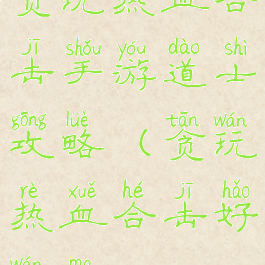 贪玩热血合
jī shǒu yóu dào shì
击手游道士
gōng lüè tān wán
攻略（贪玩
rè xuě hé jī hǎo
热血合击好
wán ma